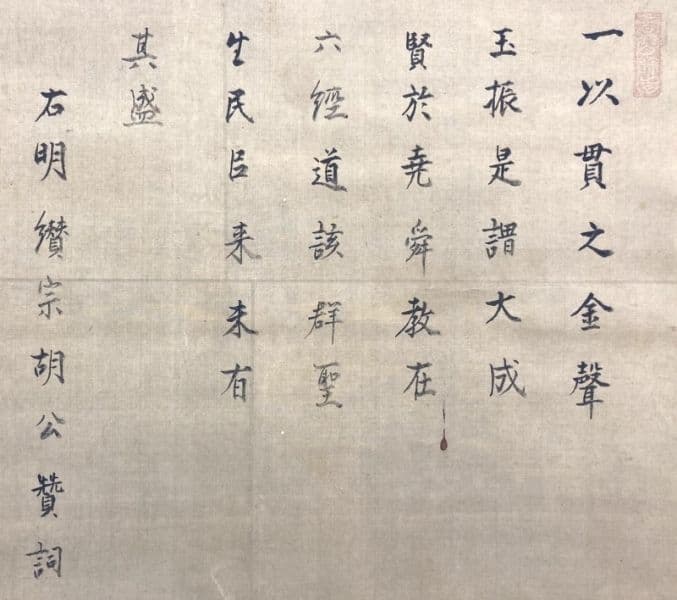 一以貫之金聲
玉振是謂大成
賢於尭舜教在
六經道該群聖
生民臣来未有
其盛
右明纘宗胡公贊詞